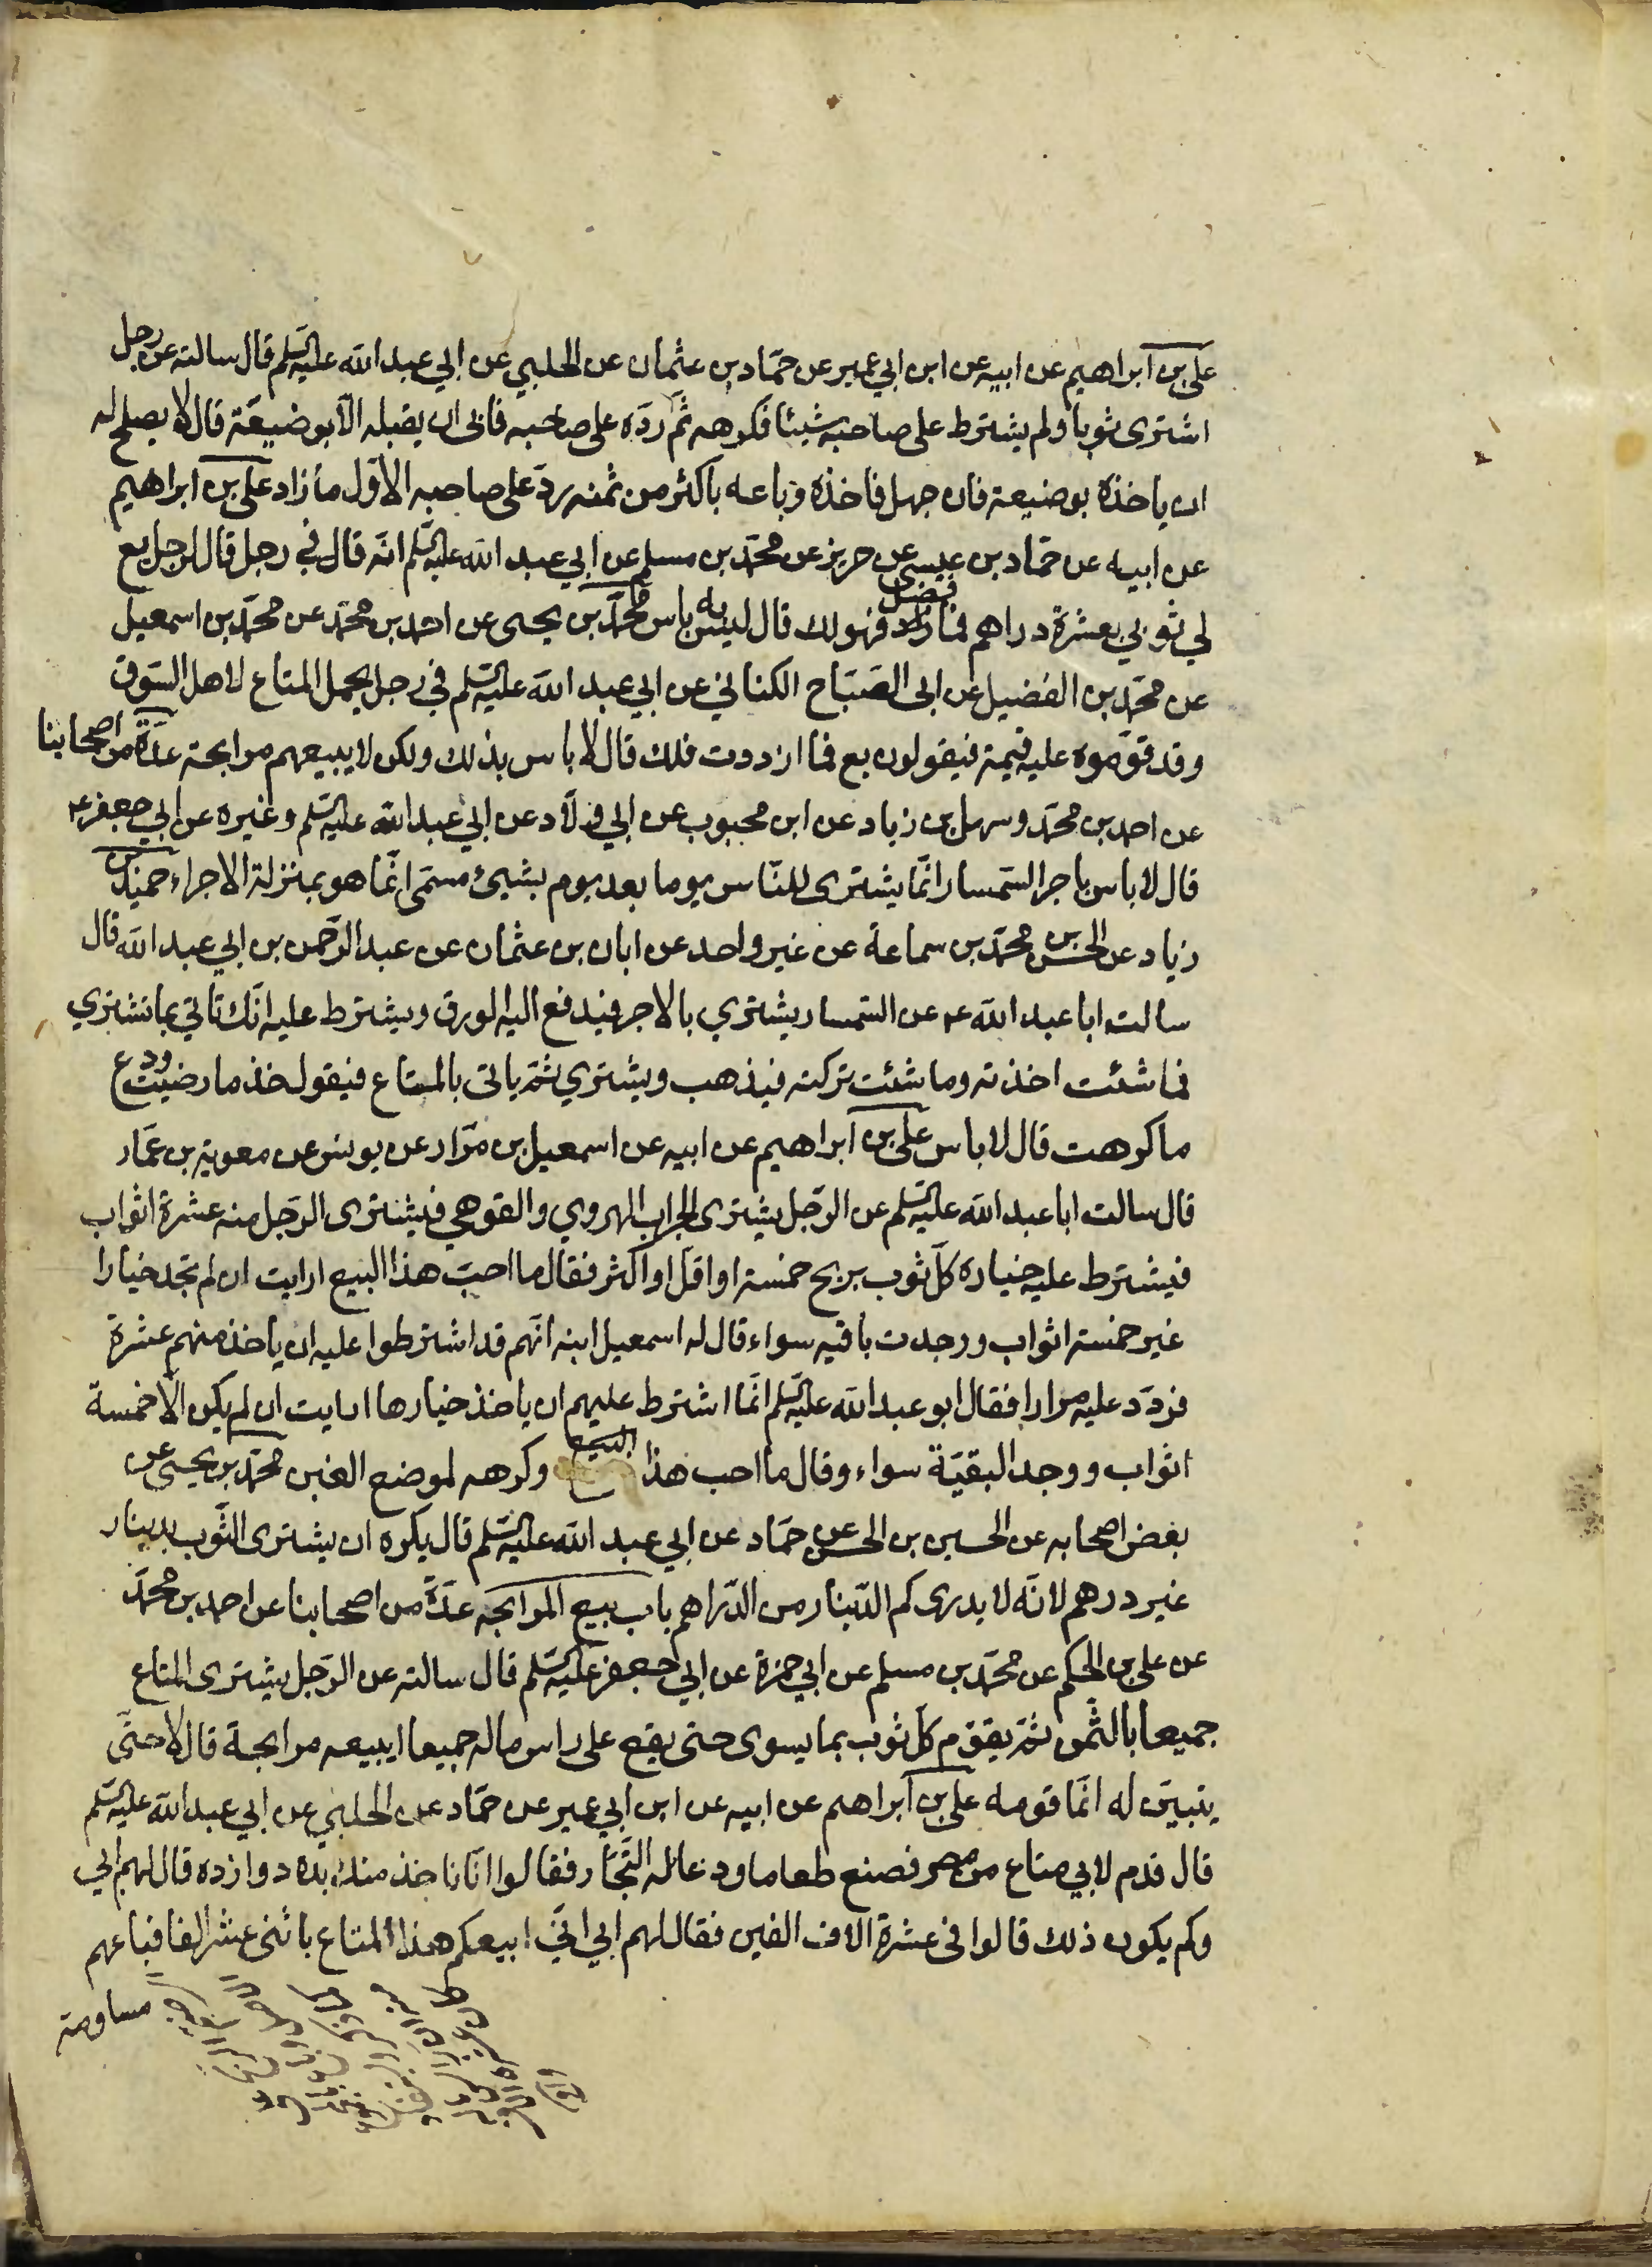 علي بن ابراهيم عن ابيه عن ابن ابي عمير عن حمّاد بن عثمان عن الحلبي عن ابي عبد الله عليه السّلم قال سالته عن رجل
اشترى ثوبا ولم يشترط على صاحبه شيئا فكرهه ثمّ ردّه على صاحبه فابى ان يقبله الّا بوضيعة قال لا يصلح له
ان ياخذه بوضيعة فان جهل فاخذه وباعه باكثر من ثمنه ردّ على صاحبه الاوّل ما زاد علي بن ابراهيم
عن ابيه عن حمّاد بن عيسى عن حريز عن محمّد بن مسلم عن ابي عبد الله عليه السّلم انّه قال في رجل قال لرجل بع
لي ثوبي بعشرة دراهم فما زاد فضل فهو لك قال ليس به باس محمّد بن يحيى عن احمد بن محمّد عن محمّد بن اسمعيل
عن محمّد بن الفضيل عن ابي الصّبّاح الكناني عن ابي عبد الله عليه السّلم في رجل يحمل المتاع لاهل السّوق
وقد قوّموه عليه قيمة فيقولون بع فما ازددت فلك قال لا باس بذلك ولكن لا يبيعهم مرابحة عدّة من اصحابنا
عن احمد بن محمّد وسهل بن زياد عن ابن محبوب عن ابي ولّاد عن ابي عبد الله عليه السّلم وغيره عن ابي جعفر ع
قال لا باس باجر السّمسار انّما يشترى للنّاس يوما بعد يوم بشيئ مسمّى انّما هو بمنزلة الاجراء حميد بن
زياد عن الحسن بن محمّد بن سماعة عن غير واحد عن ابان بن عثمان عن عبد الرّحمن بن ابي عبد الله قال
سالت ابا عبد الله ع عن السّمسار يشتري بالاجر فيدفع اليه الورق ويشترط عليه انّك تاتي بما تشتري
فما شئت اخذته وما شئت تركته فيذهب ويشتري ثمّ ياتى بالمتاع فيقول خذ ما رضيت ودع
ما كرهت قال لا باس علي بن ابراهيم عن ابيه عن اسمعيل بن مرّار عن يونس عن معوية بن عمّار
قال سالت ابا عبد الله عليه السّلم عن الرّجل يشترى الجراب الهروي والقوهي فيشترى الرّجل منه عشرة اثواب
فيشترط عليه خياره كلّ ثوب بربح خمسة او اقلّ او اكثر فقال ما احبّ هذا البيع ارايت ان لم تجد خيارا
غير خمسة اثواب ووجدت باقيه سواء قال له اسمعيل ابنه انّهم قد اشترطوا عليه ان ياخذ منهم عشرة
فردّد عليه مرارا فقال ابو عبد الله عليه السّلم انّما اشترط عليهم ان ياخذ خيارها ارايت ان لم يكن الّا خمسة
اثواب ووجد البقيّة سواء وقال ما احب هذا البيع وكرهه لموضع الغبن محمّد بن يحيى عن
بعض اصحابه عن الحسين بن الحسن عن حمّاد عن ابي عبد الله عليه السّلم قال يكره ان يشترى الثّوب بدينار
غير درهم لانّه لا يدرى كم الدّينار من الدّراهم باب بيع المرابحة عدّة من اصحابنا عن احمد بن محمّد
عن علي بن الحكم عن محمّد بن مسلم عن ابي حمزة عن ابي جعفر عليه السّلم قال سالته عن الرّجل يشترى المتاع
جميعا بالثّمن ثمّ يقوّم كلّ ثوب بما يسوى حتى يقع على راس ماله جميعا ايبيعه مرابحة قال لا حتّى
يتبيّن له انّما قومه علي بن ابراهيم عن ابيه عن ابن ابي عمير عن حمّاد عن الحلبي عن ابي عبد الله عليه السّلم
قال قدم لابي متاع من مصر فصنع طعاما ودعا له التّجّار فقالوا انّا ناخذ منك بده دوازده قال لهم ابي
وكم يكون ذلك قالوا في عشرة الاف الفين فقال لهم ابي انّي ابيعكم هذا المتاع باثنى عشر الفا فباعهم
مساومة